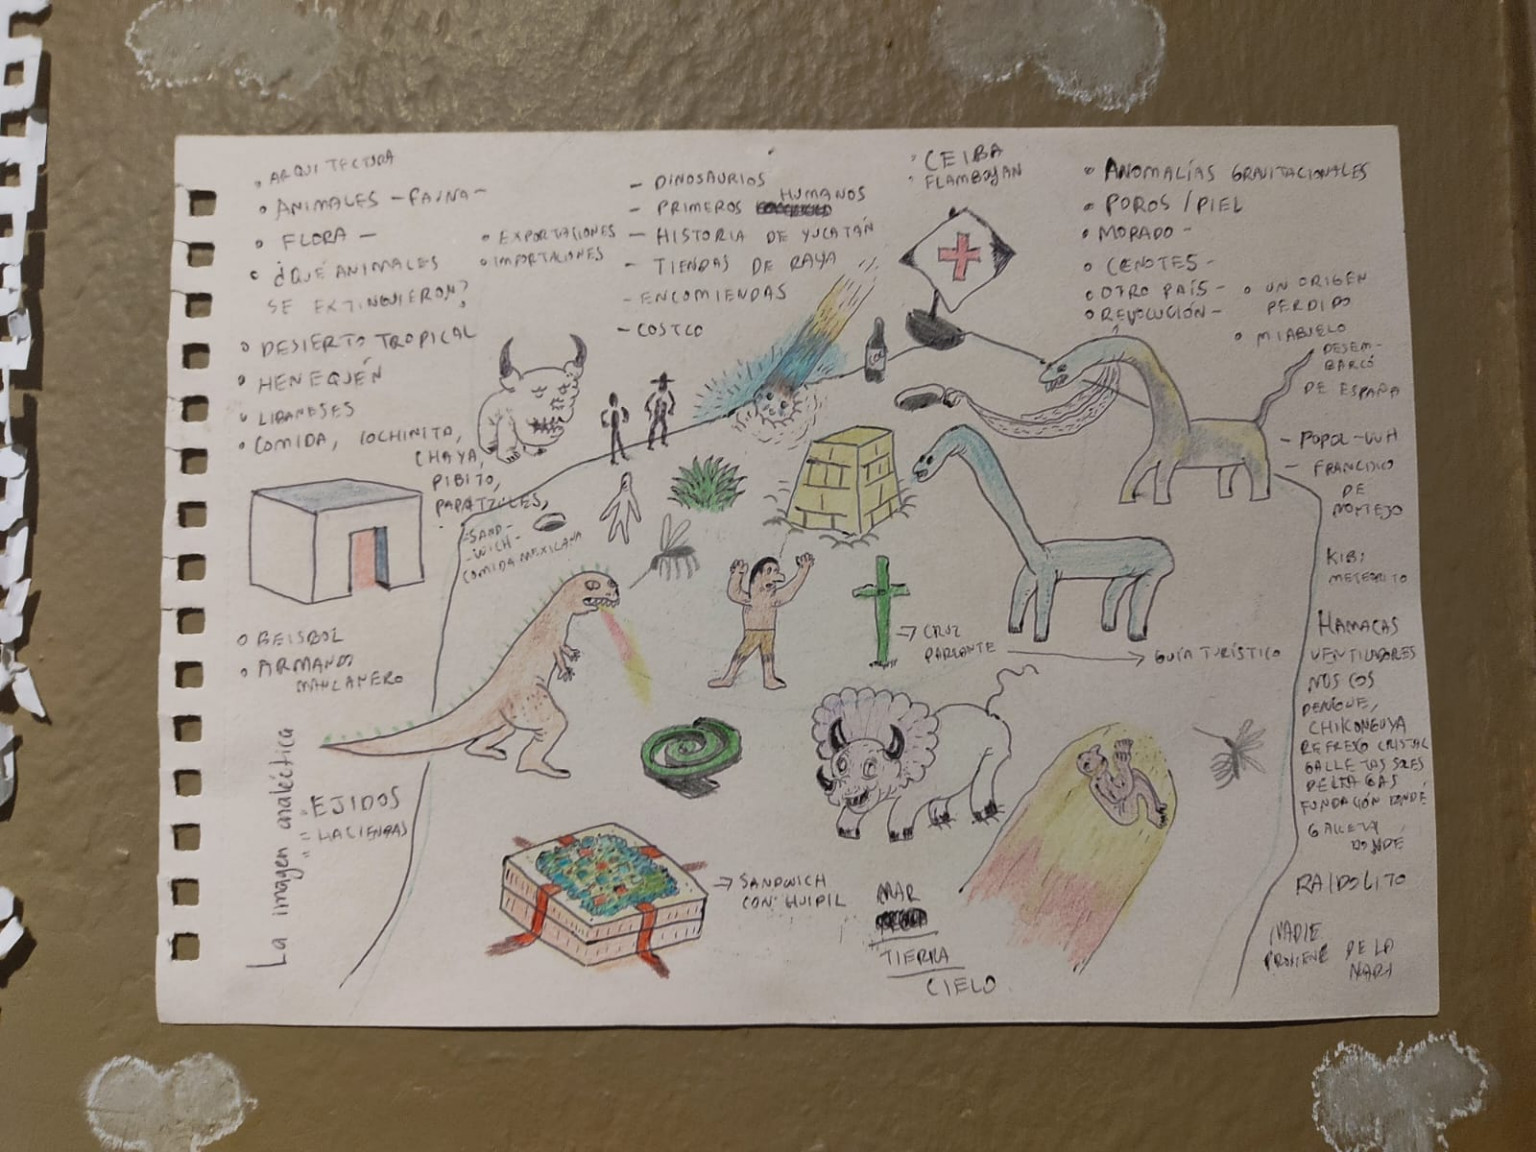 • ARQUITECTURA
• ANIMALES - FAUNA -
• FLORA -
• ¿QUÉ ANIMALES
SE EXTINGUIERON?
• DESIERTO TROPICAL
• HENEQUÉN
• LIBANESES
• COMIDA, COCHINITA,
CHAYA,
PIBITO,
PAPATZULES,
-SAND-
-WICH-
COMIDA MEXICANA
• EXPORTACIONES
• IMPORTACIONES
- DINOSAURIOS
- PRIMEROS HUMANOS
- HISTORIA DE YUCATÁN
- TIENDAS DE RAYA
- ENCOMIENDAS
- COSTCO
• CEIBA
• FLAMBOYAN
• ANOMALÍAS GRAVITACIONALES
• POROS / PIEL
• MORADO -
• CENOTES -
• OTRO PAÍS -
• REVOLUCIÓN -
• UN ORIGEN
PERDIDO
• MI ABUELO
DESEM-
BARCÓ
DE ESPAÑA
- POPOL-VUH
- FRANCISCO
DE
MONTEJO
KIBI
METEORITO
HAMACAS
VENTILADORES
DENGUE,
CHIKONGUYA
REFRESCO CRISTAL
GALLETAS
DELTA GAS
FUNDACIÓN DONDÉ
GALLETA
DONDÉ
RAIDOLITO
NADIE
PROVIENE DE LA
• BEISBOL
• ARMANDO
MANZANERO
La imagen analéctica
= EJIDOS
= HACIENDAS
→ CRUZ
PARLANTE → GUÍA TURÍSTICO
→ SANDWICH
CON HUIPIL
MAR
TIERRA
CIELO